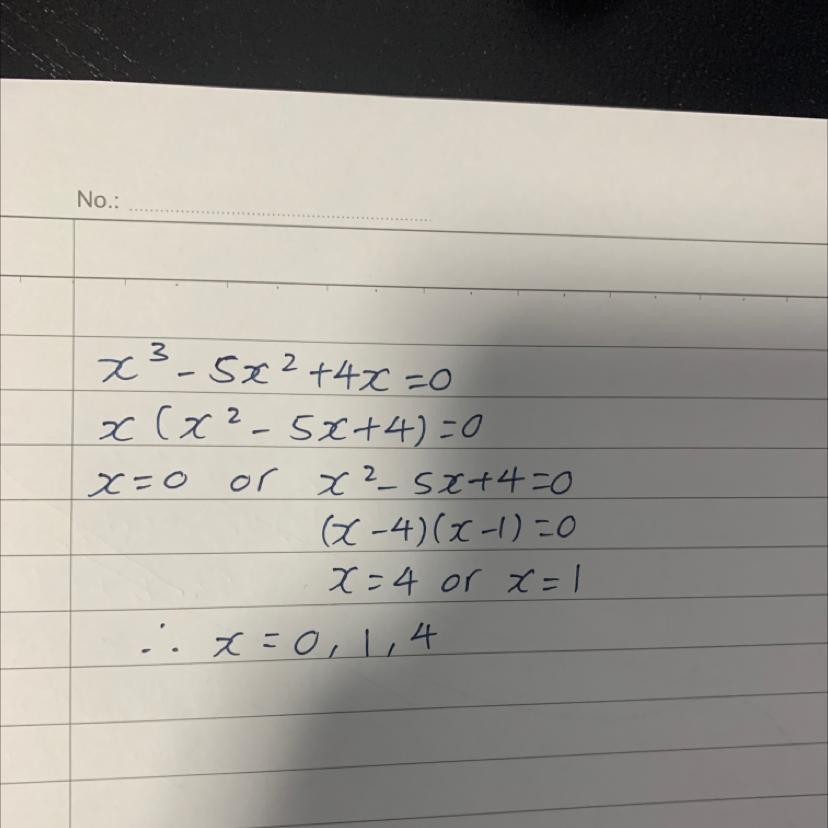 No.:
x³ - 5x² + 4x = 0
x (x² - 5x + 4) = 0
x = 0 or x² - 5x + 4 = 0
(x - 4)(x - 1) = 0
x = 4 or x = 1
∴ x = 0, 1, 4